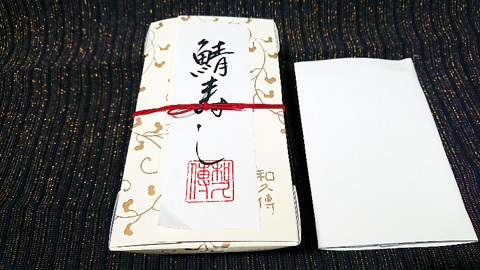 鯖寿し
和久傳
和久傳